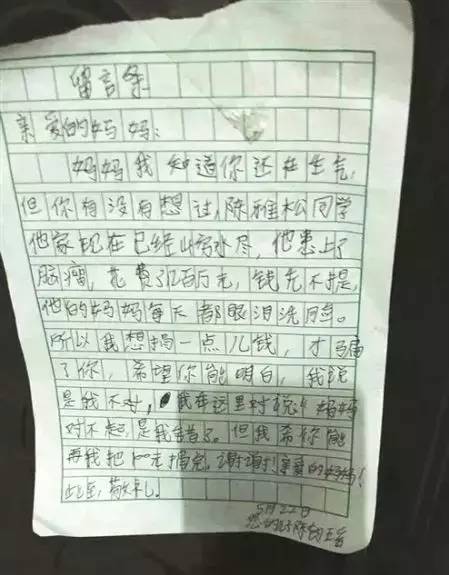 留言条
亲爱的妈妈:
妈妈我知道你还在生气,
但你有没有想过,陈雅松同学
他家现在已经山穷水尽,他患上了
脑瘤,花费了百万元,钱先不提,
他的妈妈每天都眼泪洗脸。
所以我想捐一点儿钱,才骗
了你,希望你能明白,我说
是我不对,我在这里对说:妈妈
对不起,是我错了。但我希你能
再我把100元捐完,谢谢!亲爱的妈妈!
此至,敬礼。
5月22日
您的